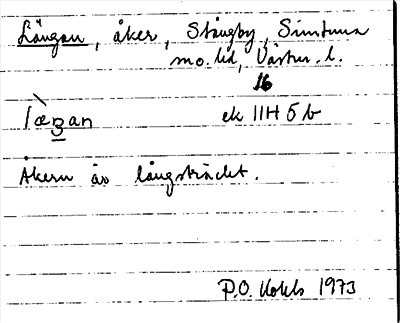 Långan, åker, Stångby, Simtuna
sn o. hd, Västm. l.
16
l`æʒan ek 11H 5b
Åkern är långsträckt.
P.O. 1973